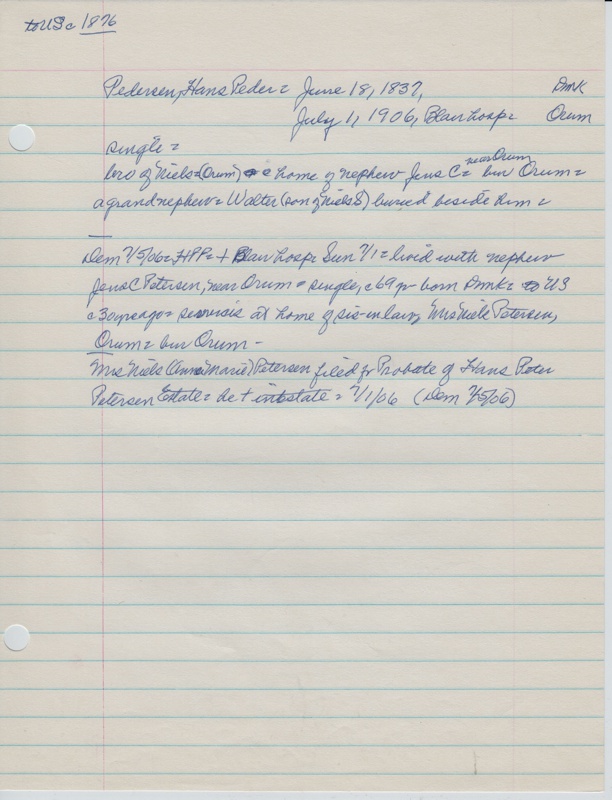 to US c 1876
Pedersen, Hans Peder = June 18, 1837, Dmk
July 1, 1906, Blair hosp = Orum
single =
bro of Niels = (Orum) c home of nephew Jens C = near Orum bur Orum =
a grand nephew = Walter (son of Niels S) buried beside him =
Dem 7/5/06 = HPP = + Blair hosp = Sun 7/1 = lived with nephew
Jens C Petersen, near Orum = single, c 69 yr born Dmk = to US
c 30 yrs ago = services at home of sis-in-law, Mrs Niels Petersen,
Orum = bur Orum -
Mrs Niels (Anne Marie) Petersen filed for Probate of Hans Peter
Petersen Estate = he + intestate = 7/1/06 (Dem 7/5/06)